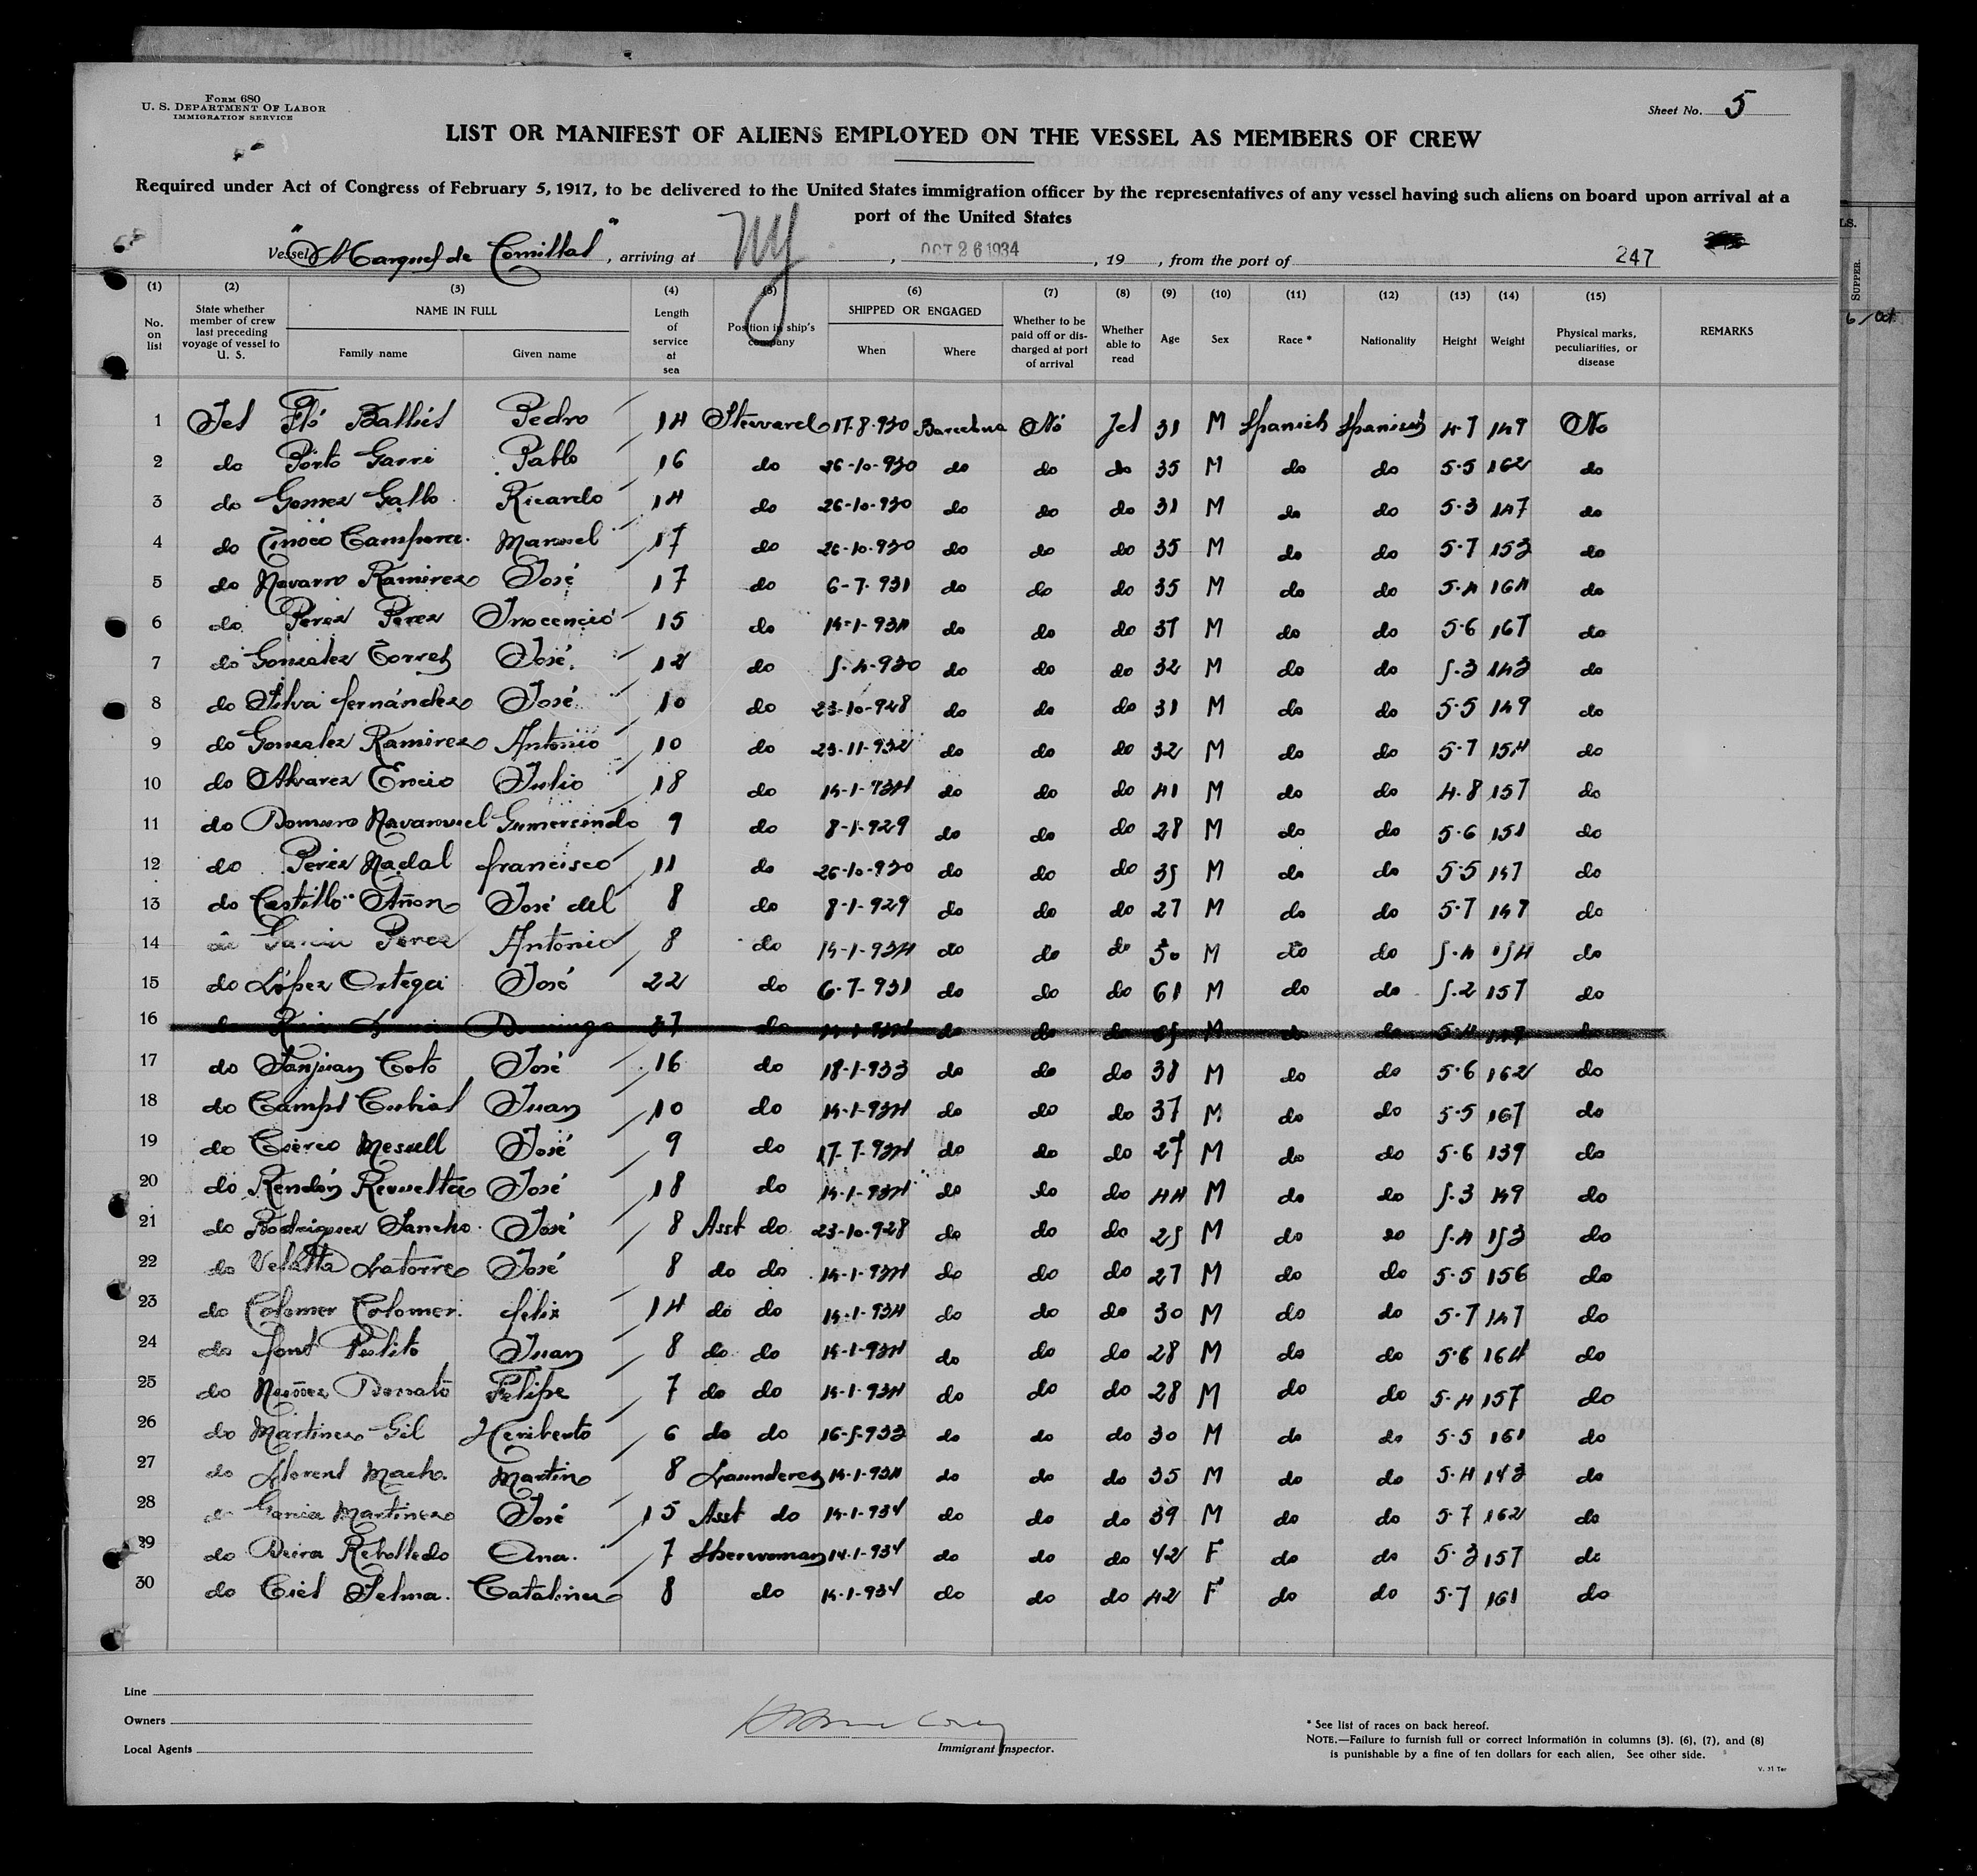 FORM 680
U. S. DEPARTMENT OF LABOR
IMMIGRATION SERVICE
Sheet No. 5
LIST OR MANIFEST OF ALIENS EMPLOYED ON THE VESSEL AS MEMBERS OF CREW
Required under Act of Congress of February 5, 1917, to be delivered to the United States immigration officer by the representatives of any vessel having such aliens on board upon arrival at a
port of the United States
Vessel "Marques de Comillas", arriving at NY, OCT 26 1934, 19 , from the port of 247
(1) (2) (3) (4) (5) (6) (7) (8) (9) (10) (11) (12) (13) (14) (15)
No. on list State whether member of crew last preceding voyage of vessel to U. S. NAME IN FULL Family name Given name Length of service at sea Position in ship's company SHIPPED OR ENGAGED When Where Whether to be paid off or discharged at port of arrival Whether able to read Age Sex Race * Nationality Height Weight Physical marks, peculiarities, or disease REMARKS
1 Yes Fló Pedro 14 Steward 17-8-930 Barcelona No Yes 31 M Spanish Spanish 4-7 149 No
2 do Porto Garri Pablo 16 do 26-10-930 do do do 35 M do do 5-5 162 do
3 do Gomez Gallo Ricardo 14 do 26-10-930 do do do 31 M do do 5-3 147 do
4 do Tinoco Campana Manuel 17 do 26-10-930 do do do 35 M do do 5-7 153 do
5 do Navarro Ramirez José 17 do 6-7-931 do do do 35 M do do 5-4 164 do
6 do Perez Perez Inocencio 15 do 14-1-934 do do do 37 M do do 5-6 167 do
7 do Gonzalez Torres José 12 do 5-4-930 do do do 32 M do do 5-3 143 do
8 do Silva fernández José 10 do 23-10-928 do do do 31 M do do 5-5 149 do
9 do Gonzalez Ramirez Antonio 10 do 23-11-932 do do do 32 M do do 5-7 154 do
10 do Alvarez Encio Julio 18 do 14-1-934 do do do 41 M do do 4-8 157 do
11 do Gumersindo 9 do 8-1-929 do do do 28 M do do 5-6 151 do
12 do Perez Nadal francisco 11 do 26-10-930 do do do 35 M do do 5-5 147 do
13 do Castillo Añon José del 8 do 8-1-929 do do do 27 M do do 5-7 147 do
14 do Garcia Perez Antonio 8 do 14-1-934 do do do 30 M do do 5-4 154 do
15 do López Ortega José 22 do 6-7-931 do do do 61 M do do 5-2 157 do
16 do Domingo 37 do 14-1-934 do do do M do do 5-4 do
17 do Sanjuan Coto José 16 do 18-1-933 do do do 38 M do do 5-6 162 do
18 do Camps Juan 10 do 14-1-934 do do do 37 M do do 5-5 167 do
19 do Cierco Messell José 9 do 17-7-934 do do do 27 M do do 5-6 139 do
20 do Rendón Revuelta José 18 do 14-1-934 do do do 44 M do do 5-3 149 do
21 do Rodriguez Sancho José 8 Asst do 23-10-928 do do do 25 M do do 5-4 153 do
22 do Velatta Latorre José 8 do do 14-1-934 do do do 27 M do do 5-5 156 do
23 do Colomer Colomer felix 14 do do 14-1-934 do do do 30 M do do 5-7 147 do
24 do font Juan 8 do do 14-1-934 do do do 28 M do do 5-6 164 do
25 do Nuñez Donato Felipe 7 do do 14-1-934 do do do 28 M do do 5-4 157 do
26 do Martinez Gil Heriberto 6 do do 16-5-933 do do do 30 M do do 5-5 161 do
27 do Llorens Macho Martin 8 Launderer 14-1-934 do do do 35 M do do 5-4 143 do
28 do Garcia Martinez José 15 Asst do 14-1-934 do do do 39 M do do 5-7 162 do
29 do Rebolledo Ana 7 14-1-934 do do do 42 F do do 5-3 157 do
30 do Selma Catalina 8 do 14-1-934 do do do 42 F do do 5-7 161 do
Line
Owners
Local Agents
Immigrant Inspector.
* See list of races on back hereof.
NOTE.—Failure to furnish full or correct information in columns (3), (6), (7), and (8)
is punishable by a fine of ten dollars for each alien. See other side.
LS.
SUPPER.